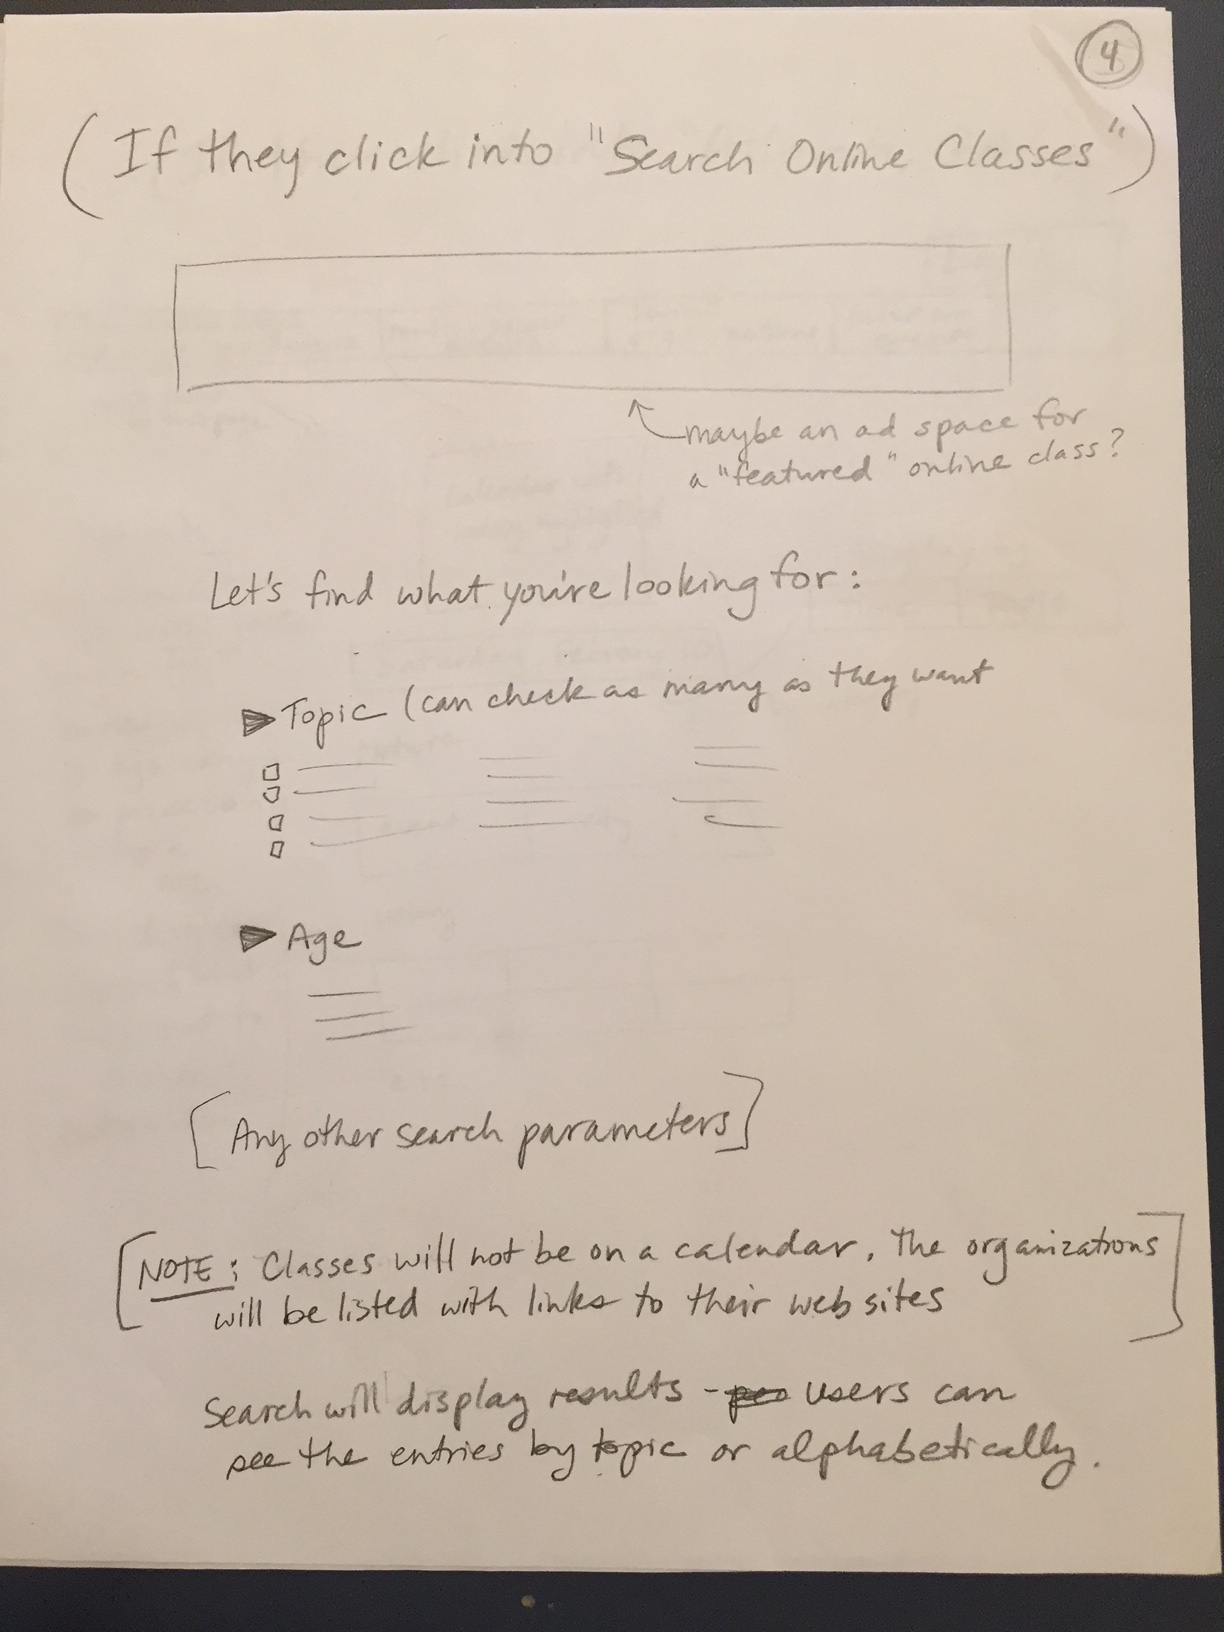 4
(If they click into "Search Online Classes")
maybe an ad space for
a "featured" online class?
Let's find what you're looking for:
Topic (can check as many as they want
Age
[Any other search parameters]
[NOTE: Classes will not be on a calendar, the organizations
will be listed with links to their web sites]
Search will display results - users can
see the entries by topic or alphabetically.